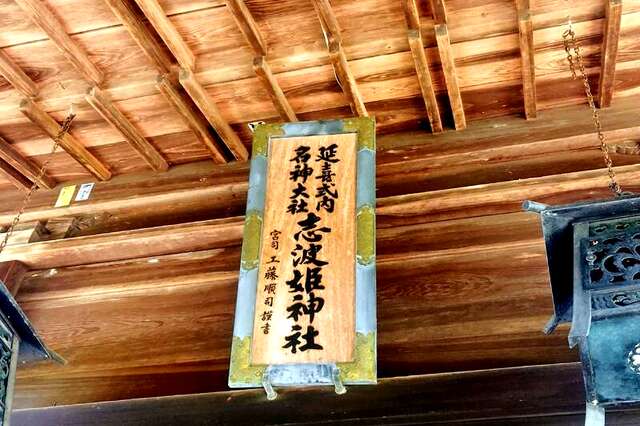 延喜式内
名神大社
志波姫神社
宮司 工藤順司 謹書